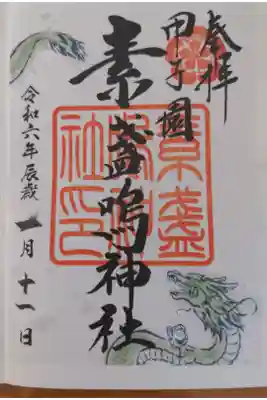 奉拝
甲子園
素盞嗚神社
素盞嗚神社印
令和六年辰歳
一月十一日